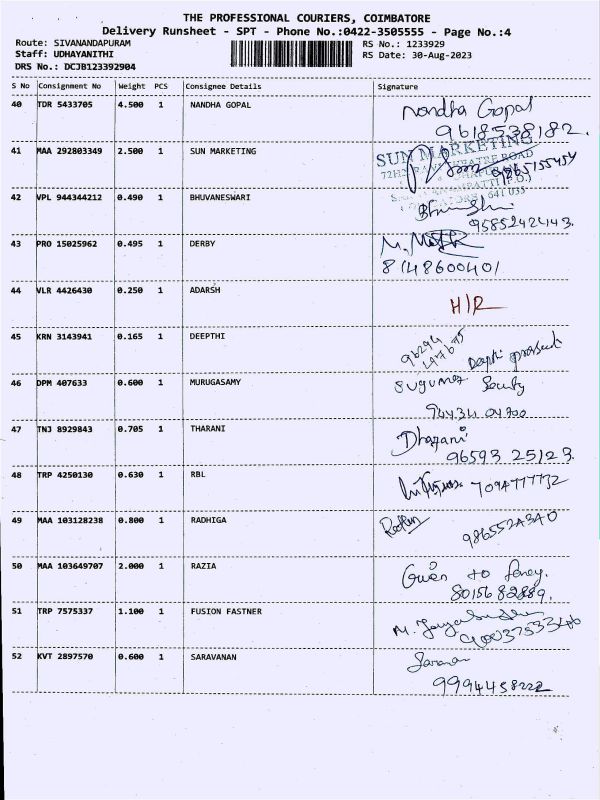 THE PROFESSIONAL COURIERS, COIMBATORE
Delivery Runsheet - SPT - Phone No.:0422-3505555 - Page No.:4
Route: SIVANANDAPURAM RS No.: 1233929
Staff: UDHAYANITHI RS Date: 30-Aug-2023
DRS No.: DCJB123392904
S No Consignment No Weight PCS Consignee Details Signature
40 TDR 5433705 4.500 1 NANDHA GOPAL Nandha Gopal
9618538182.
41 MAA 292803349 2.500 1 SUN MARKETING SUN MARKETING
9865155454
42 VPL 944344212 0.490 1 BHUVANESWARI
9585242443.
43 PRO 15025962 0.495 1 DERBY
8148600401
44 VLR 4426430 0.250 1 ADARSH H/R
45 KRN 3143941 0.165 1 DEEPTHI
46 DPM 407633 0.600 1 MURUGASAMY
94434 04700
47 TNJ 8929843 0.705 1 THARANI Dharani
96593 25123.
48 TRP 4250130 0.630 1 RBL 7094777732
49 MAA 103128238 0.800 1 RADHIGA
50 MAA 103649707 2.000 1 RAZIA Given to
8015682889.
51 TRP 7575337 1.100 1 FUSION FASTNER
52 KVT 2897570 0.600 1 SARAVANAN
9994458222